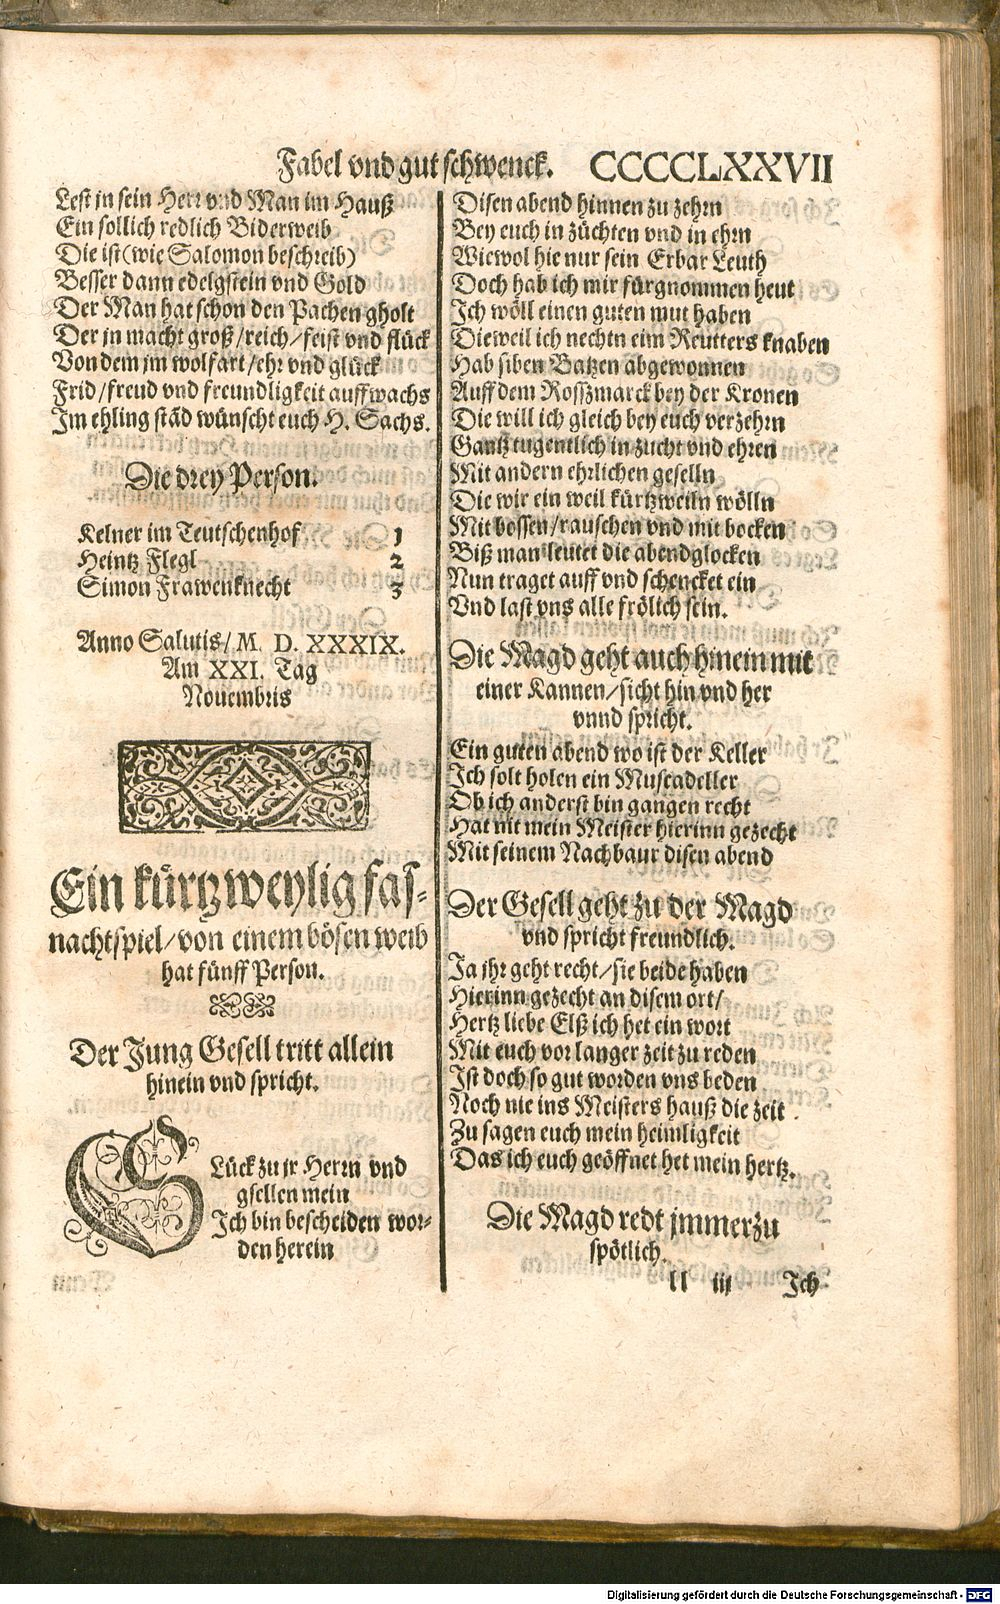 Fabel vnd gut schwenck. CCCCCLXXVII
Lest jn sein Herr vnd Man im Hauß
Ein sollich redlich Biderweib
Die ist (wie Salomon beschreib)
Besser dann edelgstein vnd Gold
Der Man hat schon den Pachen gholt
Der jn macht groß/reich/feist vnd flück
Von dem jm wolfart/ehr vnd glück
Frid/freud vnd freundligkeit auffwachs
Im ehling stãd wünscht euch H. Sachs.
Die drey Person.
Kelner im Teutschenhof 1
Heintz Flegl 2
Simon Frawenknecht 3
Anno Salutis/ M. D. XXXIX.
Am XXI. Tag
Nouembris
Ein kürtzweylig fas-
nachtspiel/von einem bösen weib
hat fünff Person.
Der Jung Gesell tritt allein
hinein vnd spricht.
GLück zu jr Herrn vnd
gsellen mein
Ich bin bescheiden wor-
den herein
Disen abend hinnen zu zehrn
Bey euch in züchten vnd in ehrn
Wiewol hie nur sein Erbar Leuth
Doch hab ich mir fürgnommen heut
Ich wöll einen guten mut haben
Dieweil ich nechtn eim Reutters knaben
Hab siben Batzen abgewonnen
Auff dem Rosszmarck bey der Kronen
Die will ich gleich bey euch verzehrn
Gantz tugentlich in zucht vnd ehren
Mit andern ehrlichen geselln
Die wir ein weil kürtzweiln wölln
Mit bossen/rauschen vnd mit bocken
Biß man leutet die abendglocken
Nun traget auff vnd schencket ein
Vnd last vns alle frölich sein.
Die Magd geht auch hinein mit
einer Kannen/sicht hin vnd her
vnnd spricht.
Ein guten abend wo ist der Keller
Ich solt holen ein Muscadeller
Ob ich anderst bin gangen recht
Hat nit mein Meister hierinn gezecht
Mit seinem Nachbaur disen abend
Der Gesell geht zu der Magd
vnd spricht freundlich.
Ja jhr geht recht/sie beide haben
Hierinn gezecht an disem ort/
Hertz liebe Elß ich het ein wort
Mit euch vor langer zeit zu reden
Ist doch so gut worden vns beden
Noch nie ins Meisters hauß die zeit
Zu sagen euch mein heimligkeit
Das ich euch geöffnet het mein hertz.
Die Magd redt jmmerzu
spötlich.
ll iii Ich
Digitalisierung gefördert durch die Deutsche Forschungsgemeinschaft - DFG